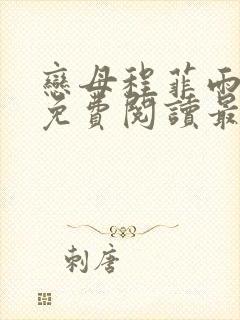 戀母程菲雨
免費閱讀最
刺唐